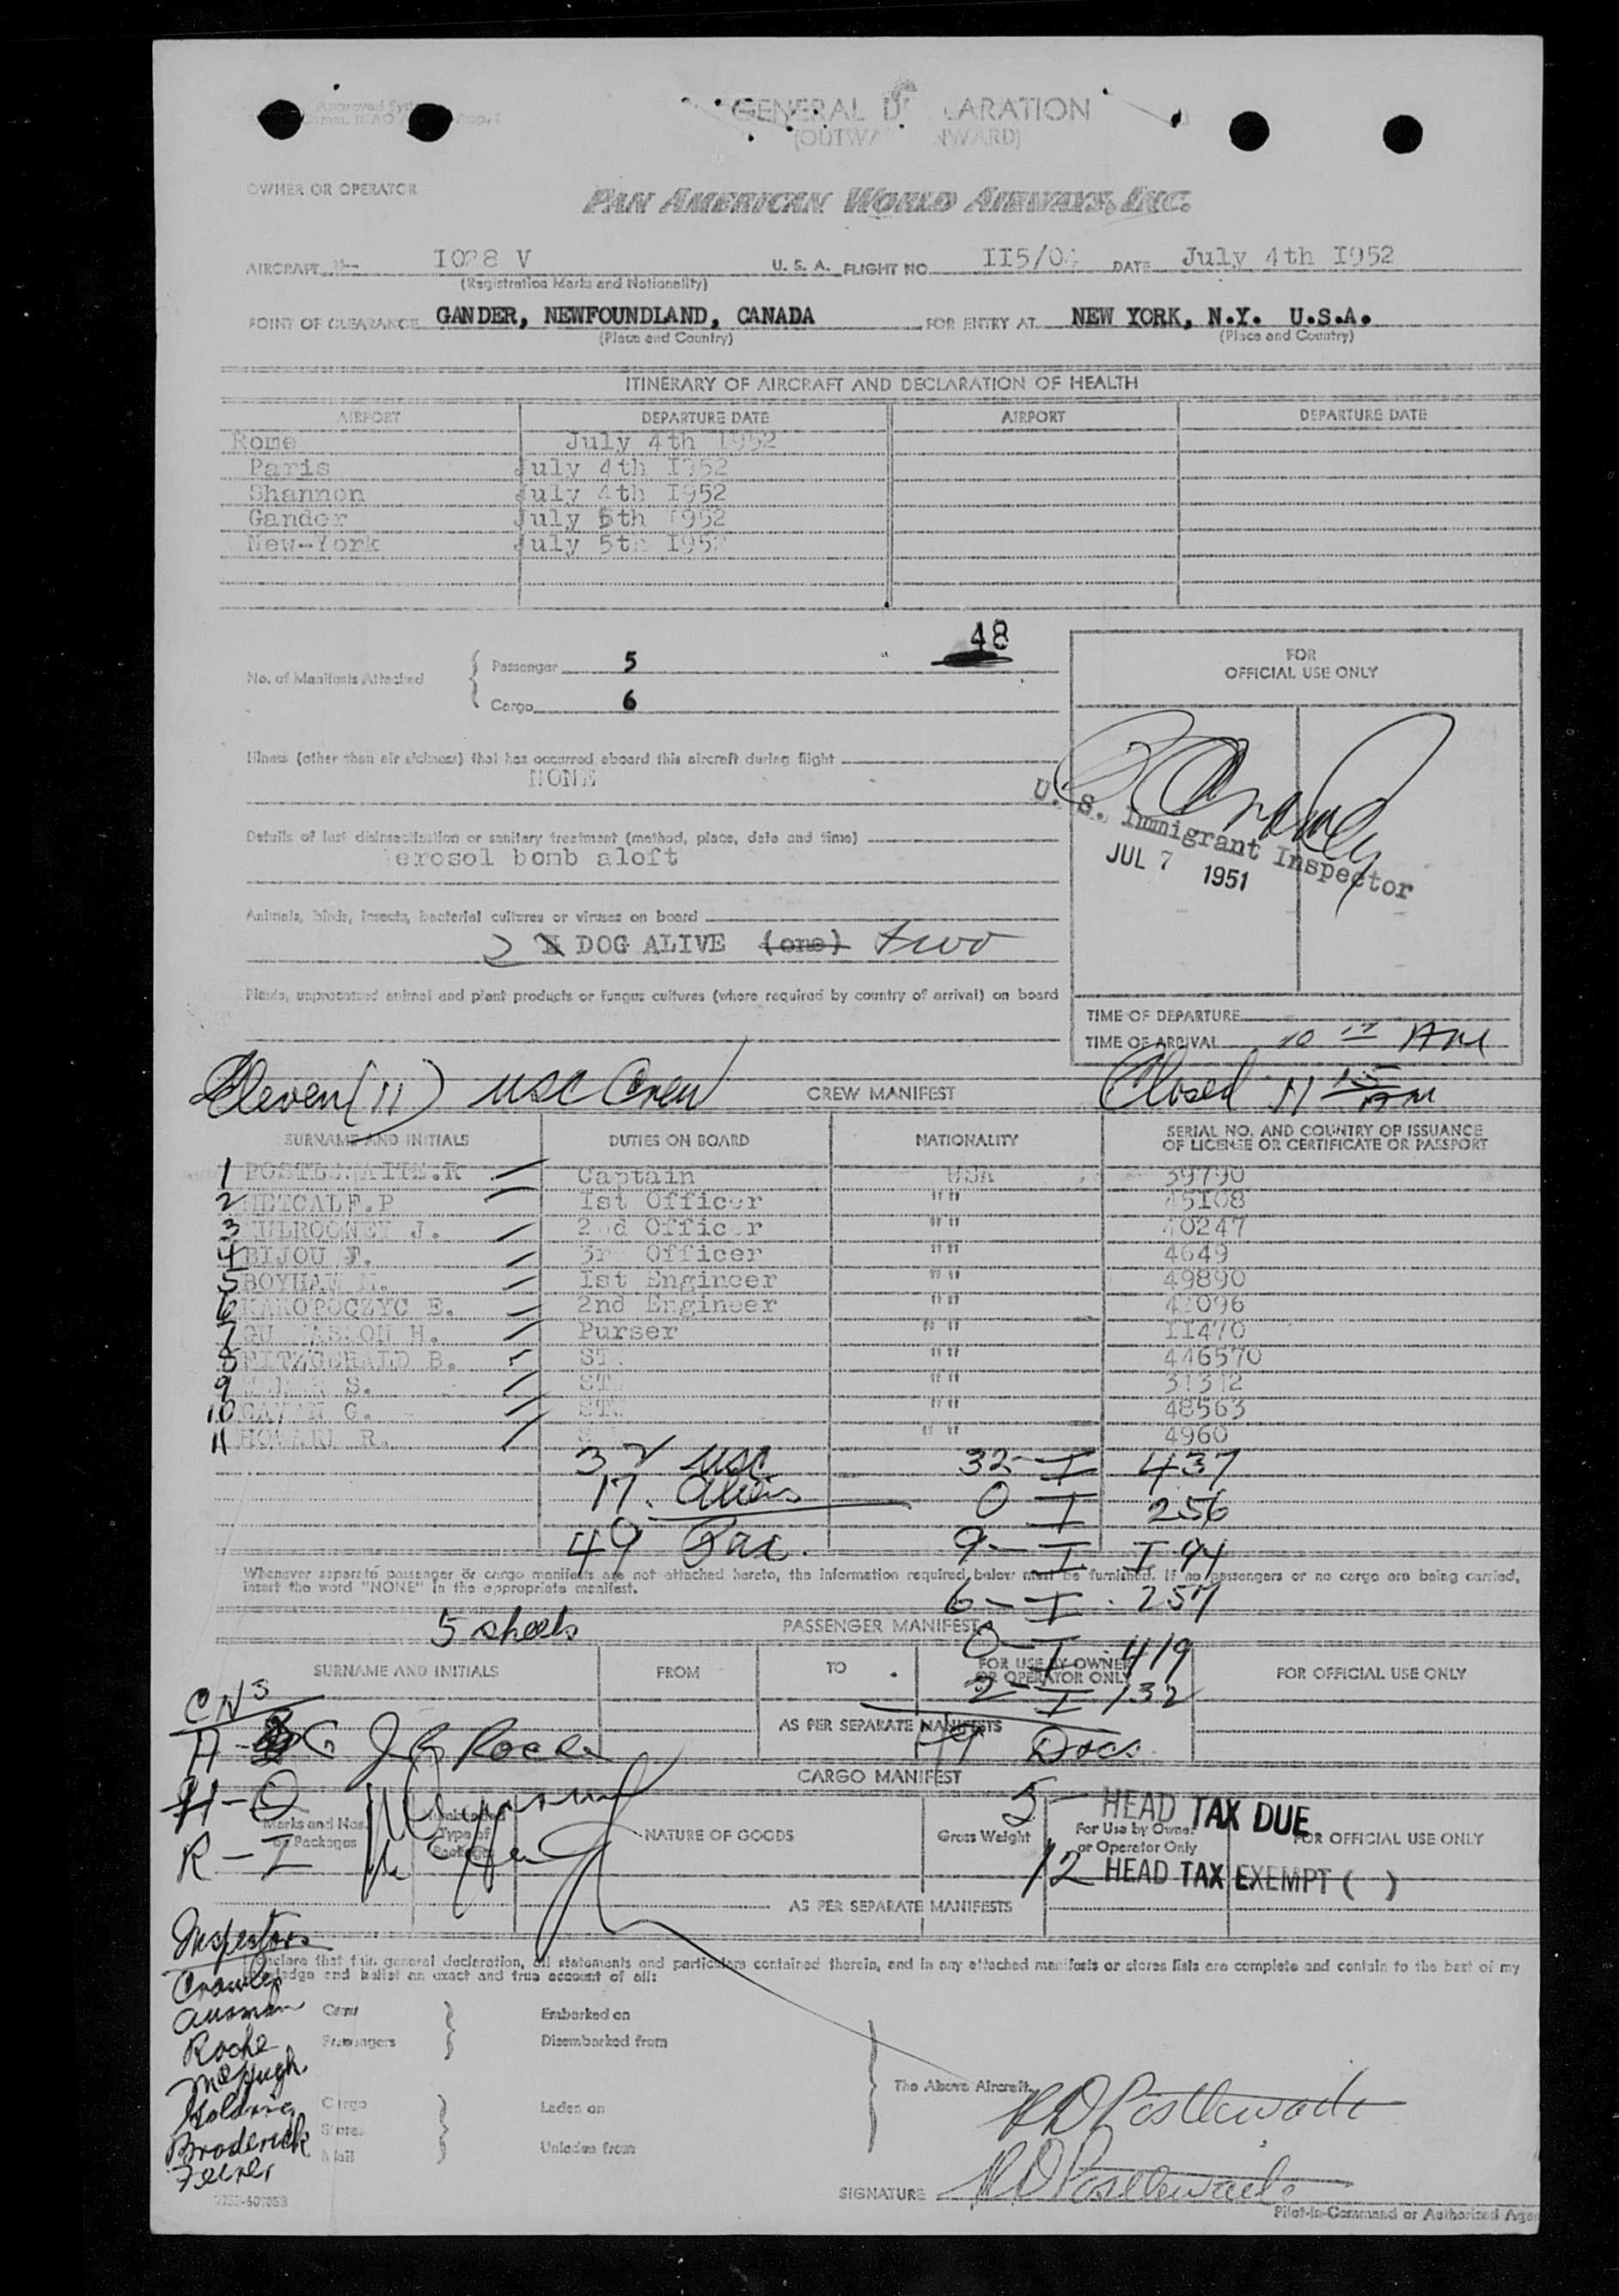 Approved
GENERAL D ARATION
(OUTWA NWARD)
OWNER OR OPERATOR
PAN AMERICAN WORLD AIRWAYS, INC.
AIRCRAFT I028 V U. S. A. FLIGHT NO. II5/04 DATE July 4th I952
(Registration Marks and Nationality)
POINT OF CLEARANCE GANDER, NEWFOUNDLAND, CANADA FOR ENTRY AT NEW YORK, N.Y. U.S.A.
(Place and Country) (Place and Country)
ITINERARY OF AIRCRAFT AND DECLARATION OF HEALTH
AIRPORT DEPARTURE DATE AIRPORT DEPARTURE DATE
Rome July 4th I952
Paris July 4th I952
Shannon July 4th I952
Gander July 5th I952
New-York July 5th I952
48
No. of Manifests Attached
Passenger 5
Cargo 6
FOR
OFFICIAL USE ONLY
Illness (other than air sickness) that has occurred aboard this aircraft during flight
NONE
U. S. Immigrant Inspector
JUL 7 1951
Details of last disinsectization or sanitary treatment (method, place, date and time)
erosol bomb aloft
Animals, birds, insects, bacterial cultures or viruses on board
2 DOG ALIVE (one) two
Plants, unprocessed animal and plant products or fungus cultures (where required by country of arrival) on board
TIME OF DEPARTURE
TIME OF ARRIVAL 10 AM
Eleven (11) USC Crew CREW MANIFEST Closed 11 15 AM
SURNAME AND INITIALS DUTIES ON BOARD NATIONALITY SERIAL NO. AND COUNTRY OF ISSUANCE
OF LICENSE OR CERTIFICATE OR PASSPORT
1 Captain USA 39790
2 METCALF.P Ist Officer "" 45108
3 MULROONEY J. 2nd Officer "" 40247
4 BIJOU F. 3rd Officer "" 4649
5 Ist Engineer "" 49890
6 2nd Engineer "" 42096
7 H. Purser "" II470
8 FITZGERALD B. ST "" 446570
9 S. ST "" 31312
10 G. ST "" 48563
11 HOWARD R. "" 4960
32 USC 32-I 437
17 Aliens 0 I 256
49 Pax. 9-I I 94
Whenever separate passenger or cargo manifests are not attached hereto, the information required below must be furnished. If no passengers or no cargo are being carried,
insert the word "NONE" in the appropriate manifest.
6-I 257
5 sheets PASSENGER MANIFEST
0-I 419
SURNAME AND INITIALS FROM TO FOR USE BY OWNER
OR OPERATOR ONLY FOR OFFICIAL USE ONLY
2-I 132
CNS
AS PER SEPARATE MANIFESTS
49 Docs
CARGO MANIFEST
5 - HEAD TAX DUE
Marks and Nos.
of Packages
Number and
Type of
Packages
NATURE OF GOODS
Gross Weight
For Use by Owner
or Operator Only
FOR OFFICIAL USE ONLY
R - I
12 HEAD TAX EXEMPT ( )
AS PER SEPARATE MANIFESTS
Inspectors
I declare that this general declaration, all statements and particulars contained therein, and in any attached manifests or stores lists are complete and contain to the best of my
knowledge and belief an exact and true account of all:
Crawley
Ausman
Roche
McHugh
Golding
Broderick
Crew
Passengers
Embarked on
Disembarked from
Cargo
Stores
Mail
Laden on
Unladen from
The Above Aircraft.
R D Postlewaite
SIGNATURE R D Postlewaite
Pilot-in-Command or Authorized Agent